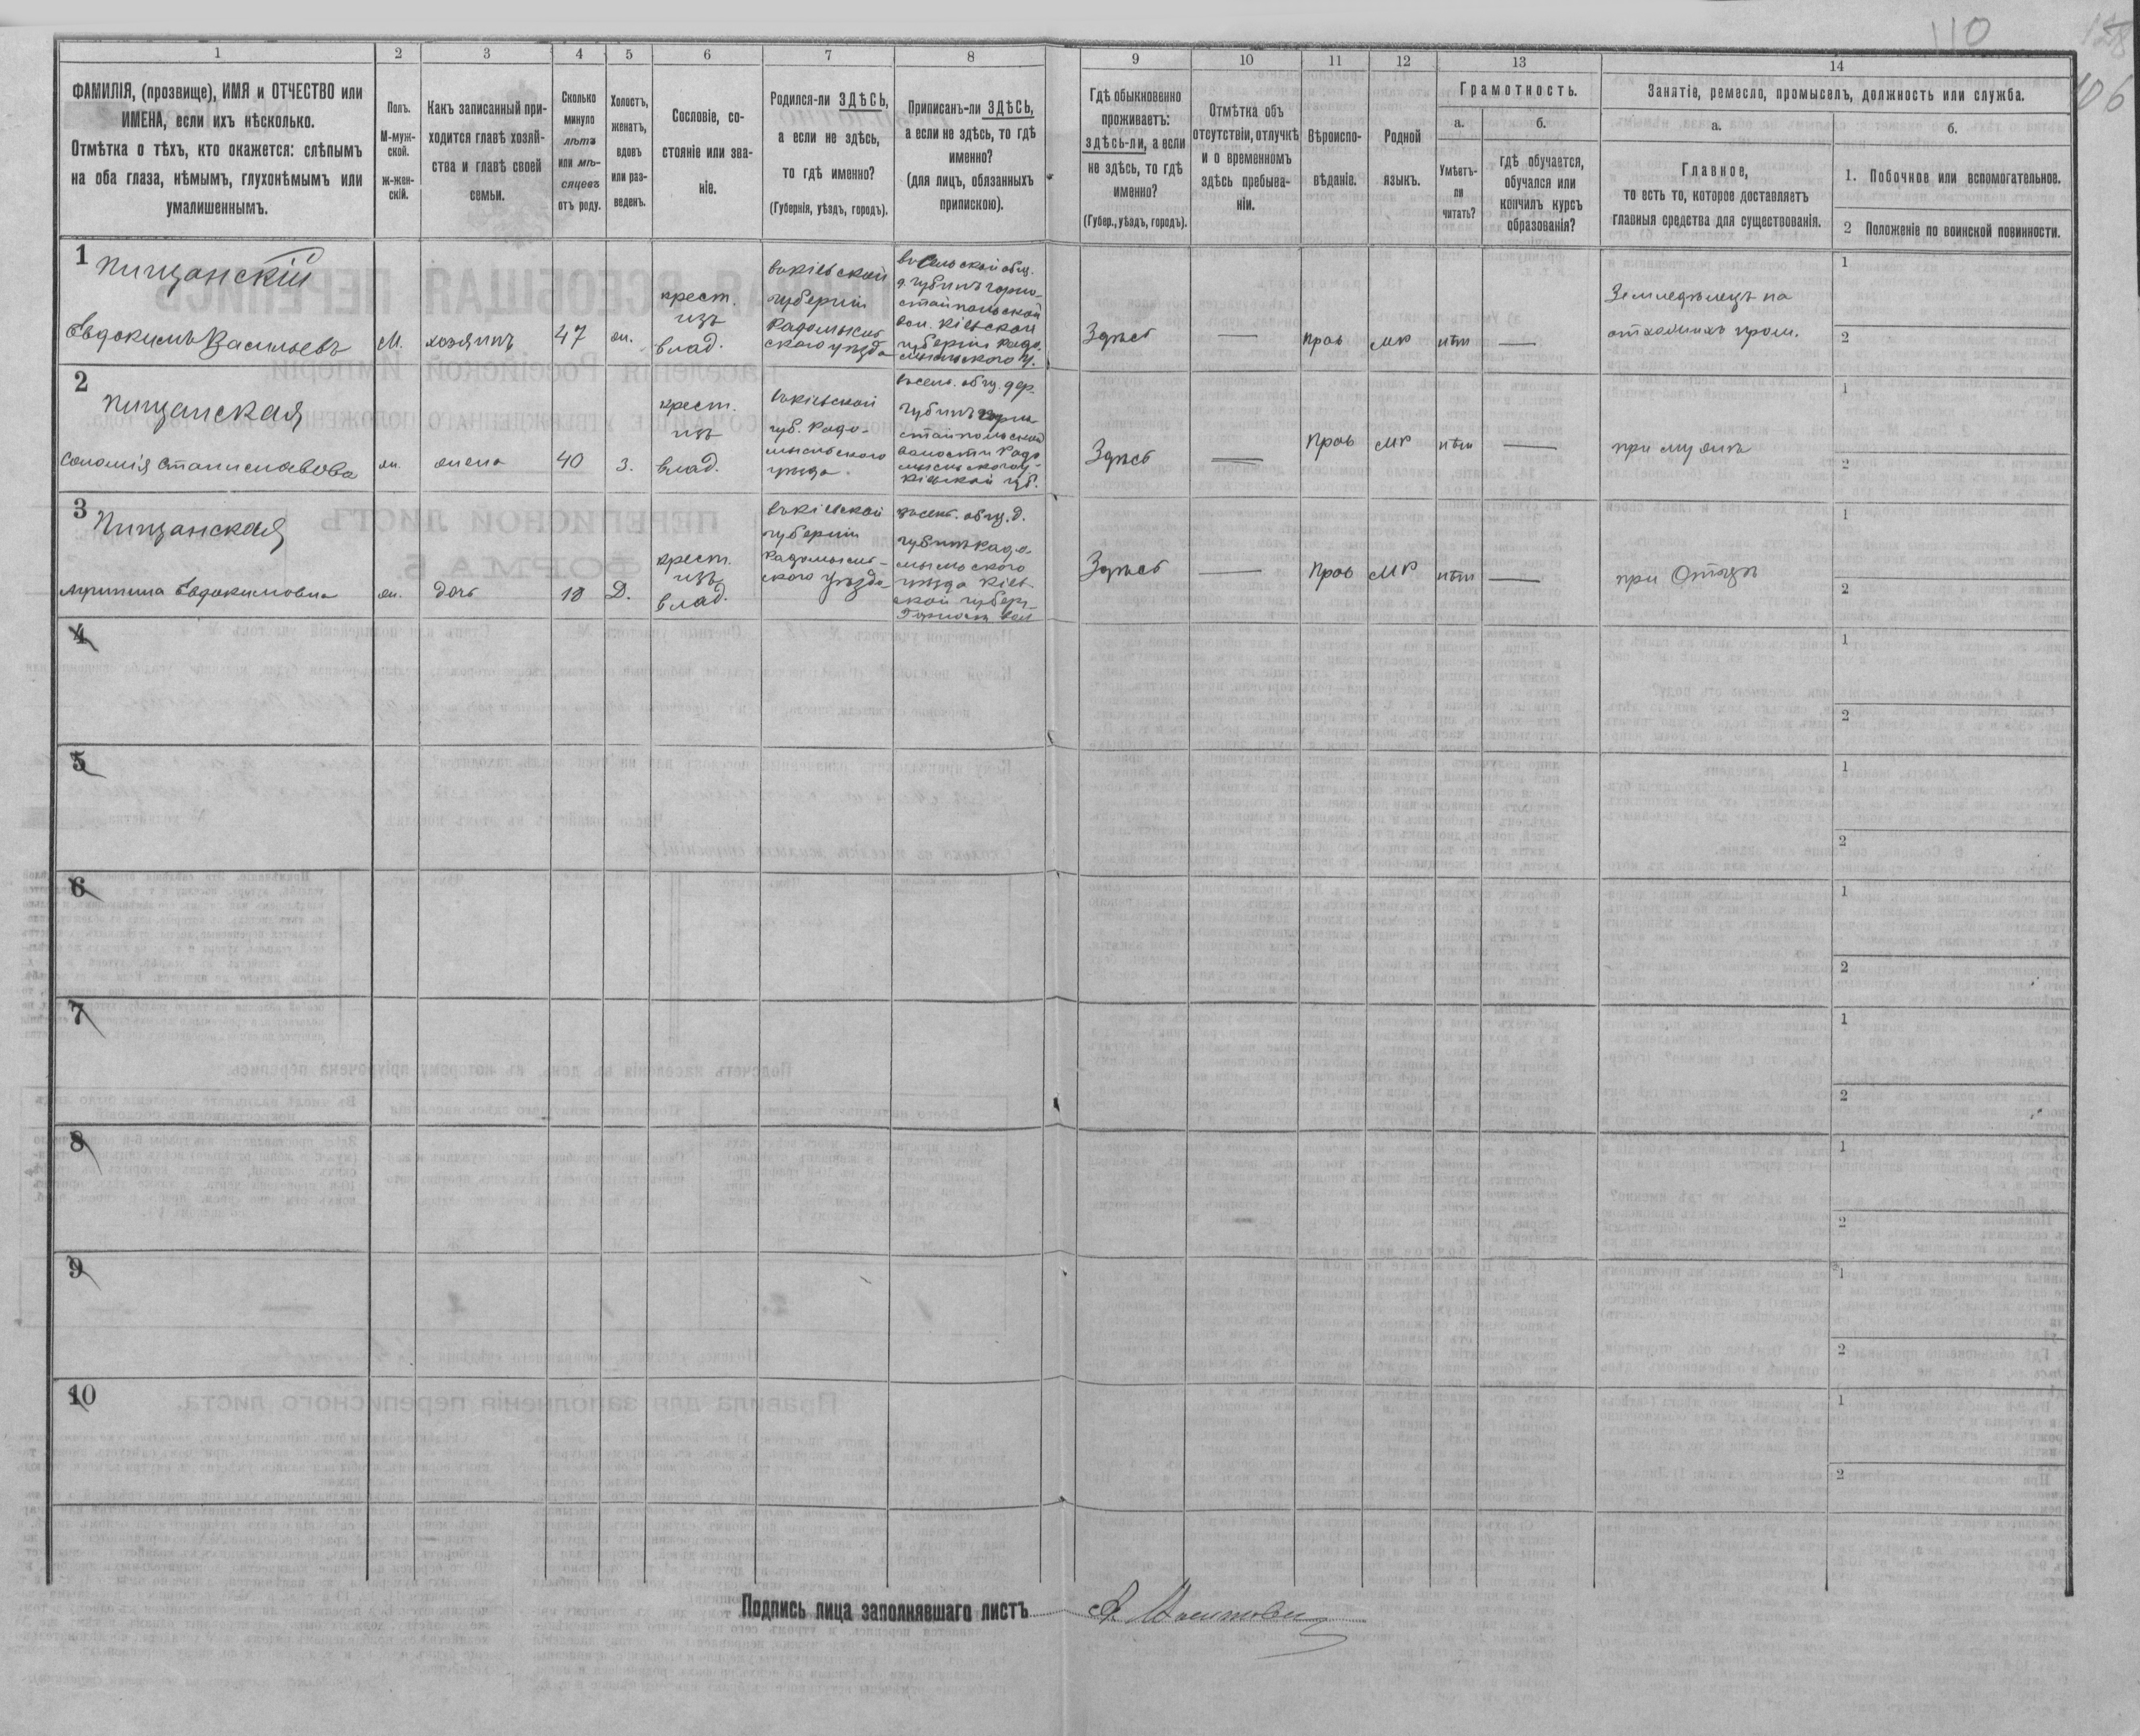 110
106
1
2
3
4
5
6
7
8
9
10
11
12
13
14
ФАМИЛІЯ, (прозвище), ИМЯ и ОТЧЕСТВО или
ИМЕНА, если ихъ нѣсколько.
Отмѣтка о тѣхъ, кто окажется: слѣпымъ
на оба глаза, нѣмымъ, глухонѣмымъ или
умалишеннымъ.
Полъ.
М-муж-
ской.
ж-жен-
скій.
Какъ записанный при-
ходится главѣ хозяй-
ства и главѣ своей
семьи.
Сколько
минуло
лѣтъ
или мѣ-
сяцевъ
отъ роду.
Холостъ,
женатъ,
вдовъ
или раз-
веденъ.
Сословіе, со-
стояніе или зва-
ніе.
Родился-ли ЗДѢСЬ,
а если не здѣсь,
то гдѣ именно?
(Губернія, уѣздъ, городъ).
Приписанъ-ли ЗДѢСЬ,
а если не здѣсь, то гдѣ
именно?
(для лицъ, обязанныхъ
припискою).
Гдѣ обыкновенно
проживаетъ:
здѣсь-ли, а если
не здѣсь, то гдѣ
именно?
(Губер., уѣздъ, городъ).
Отмѣтка объ
отсутствіи, отлучкѣ
и о временномъ
здѣсь пребыва-
ніи.
Вѣроиспо-
вѣданіе.
Родной
языкъ.
Грамотность.
а.
Умѣетъ-
ли
читать?
б.
гдѣ обучается,
обучался или
кончилъ курсъ
образованія?
Занятіе, ремесло, промыселъ, должность или служба.
а.
Главное,
то есть то, которое доставляетъ
главныя средства для существованія.
б.
1. Побочное или вспомогательное.
2 Положеніе по воинской повинности.
1
Пищанскій
Евдокимъ Васильевъ
М.
хозяинъ
47
ж.
крест.
изъ
влад.
въ Кіевской
губерніи
Радомысль
скаго уѣзда
въ сельской общ.
д. Губинъ Горно-
стайпольской
вол. Кіевской
губерніи Радо-
мысльскаго у.
Здѣсь
—
прав
мр
нѣт
—
Земледѣлецъ на
отхожихъ пром.
1
2
2
Пищанская
Соломія Станиславова
ж.
жена
40
з.
крест.
изъ
влад.
въ Кіевской
губ. Радо-
мысльскаго
уѣзда.
въ сель. общ. дер.
Губинъ Горно
стайпольской
волости Радо
мысльскаго у.
Кіевской губ.
Здѣсь
—
Прав
мр
нѣт
—
при мужѣ
1
2
3
Пищанская
Агрипина Евдокимовна
ж.
дочь
18
Д.
крест.
изъ
влад.
въ Кіевской
губерніи
Радомысль-
скаго уѣзда
въ сель. общ. д.
Губинъ Радо-
мысльскаго
уѣзда Кіев-
ской губер.
Горност. вол
Здѣсь
—
Прав
мр
нѣт
—
при Отцѣ
1
2
4
1
2
5
1
2
6
1
2
7
1
2
8
1
2
9
1
2
10
1
2
Подпись лица заполнявшаго листъ